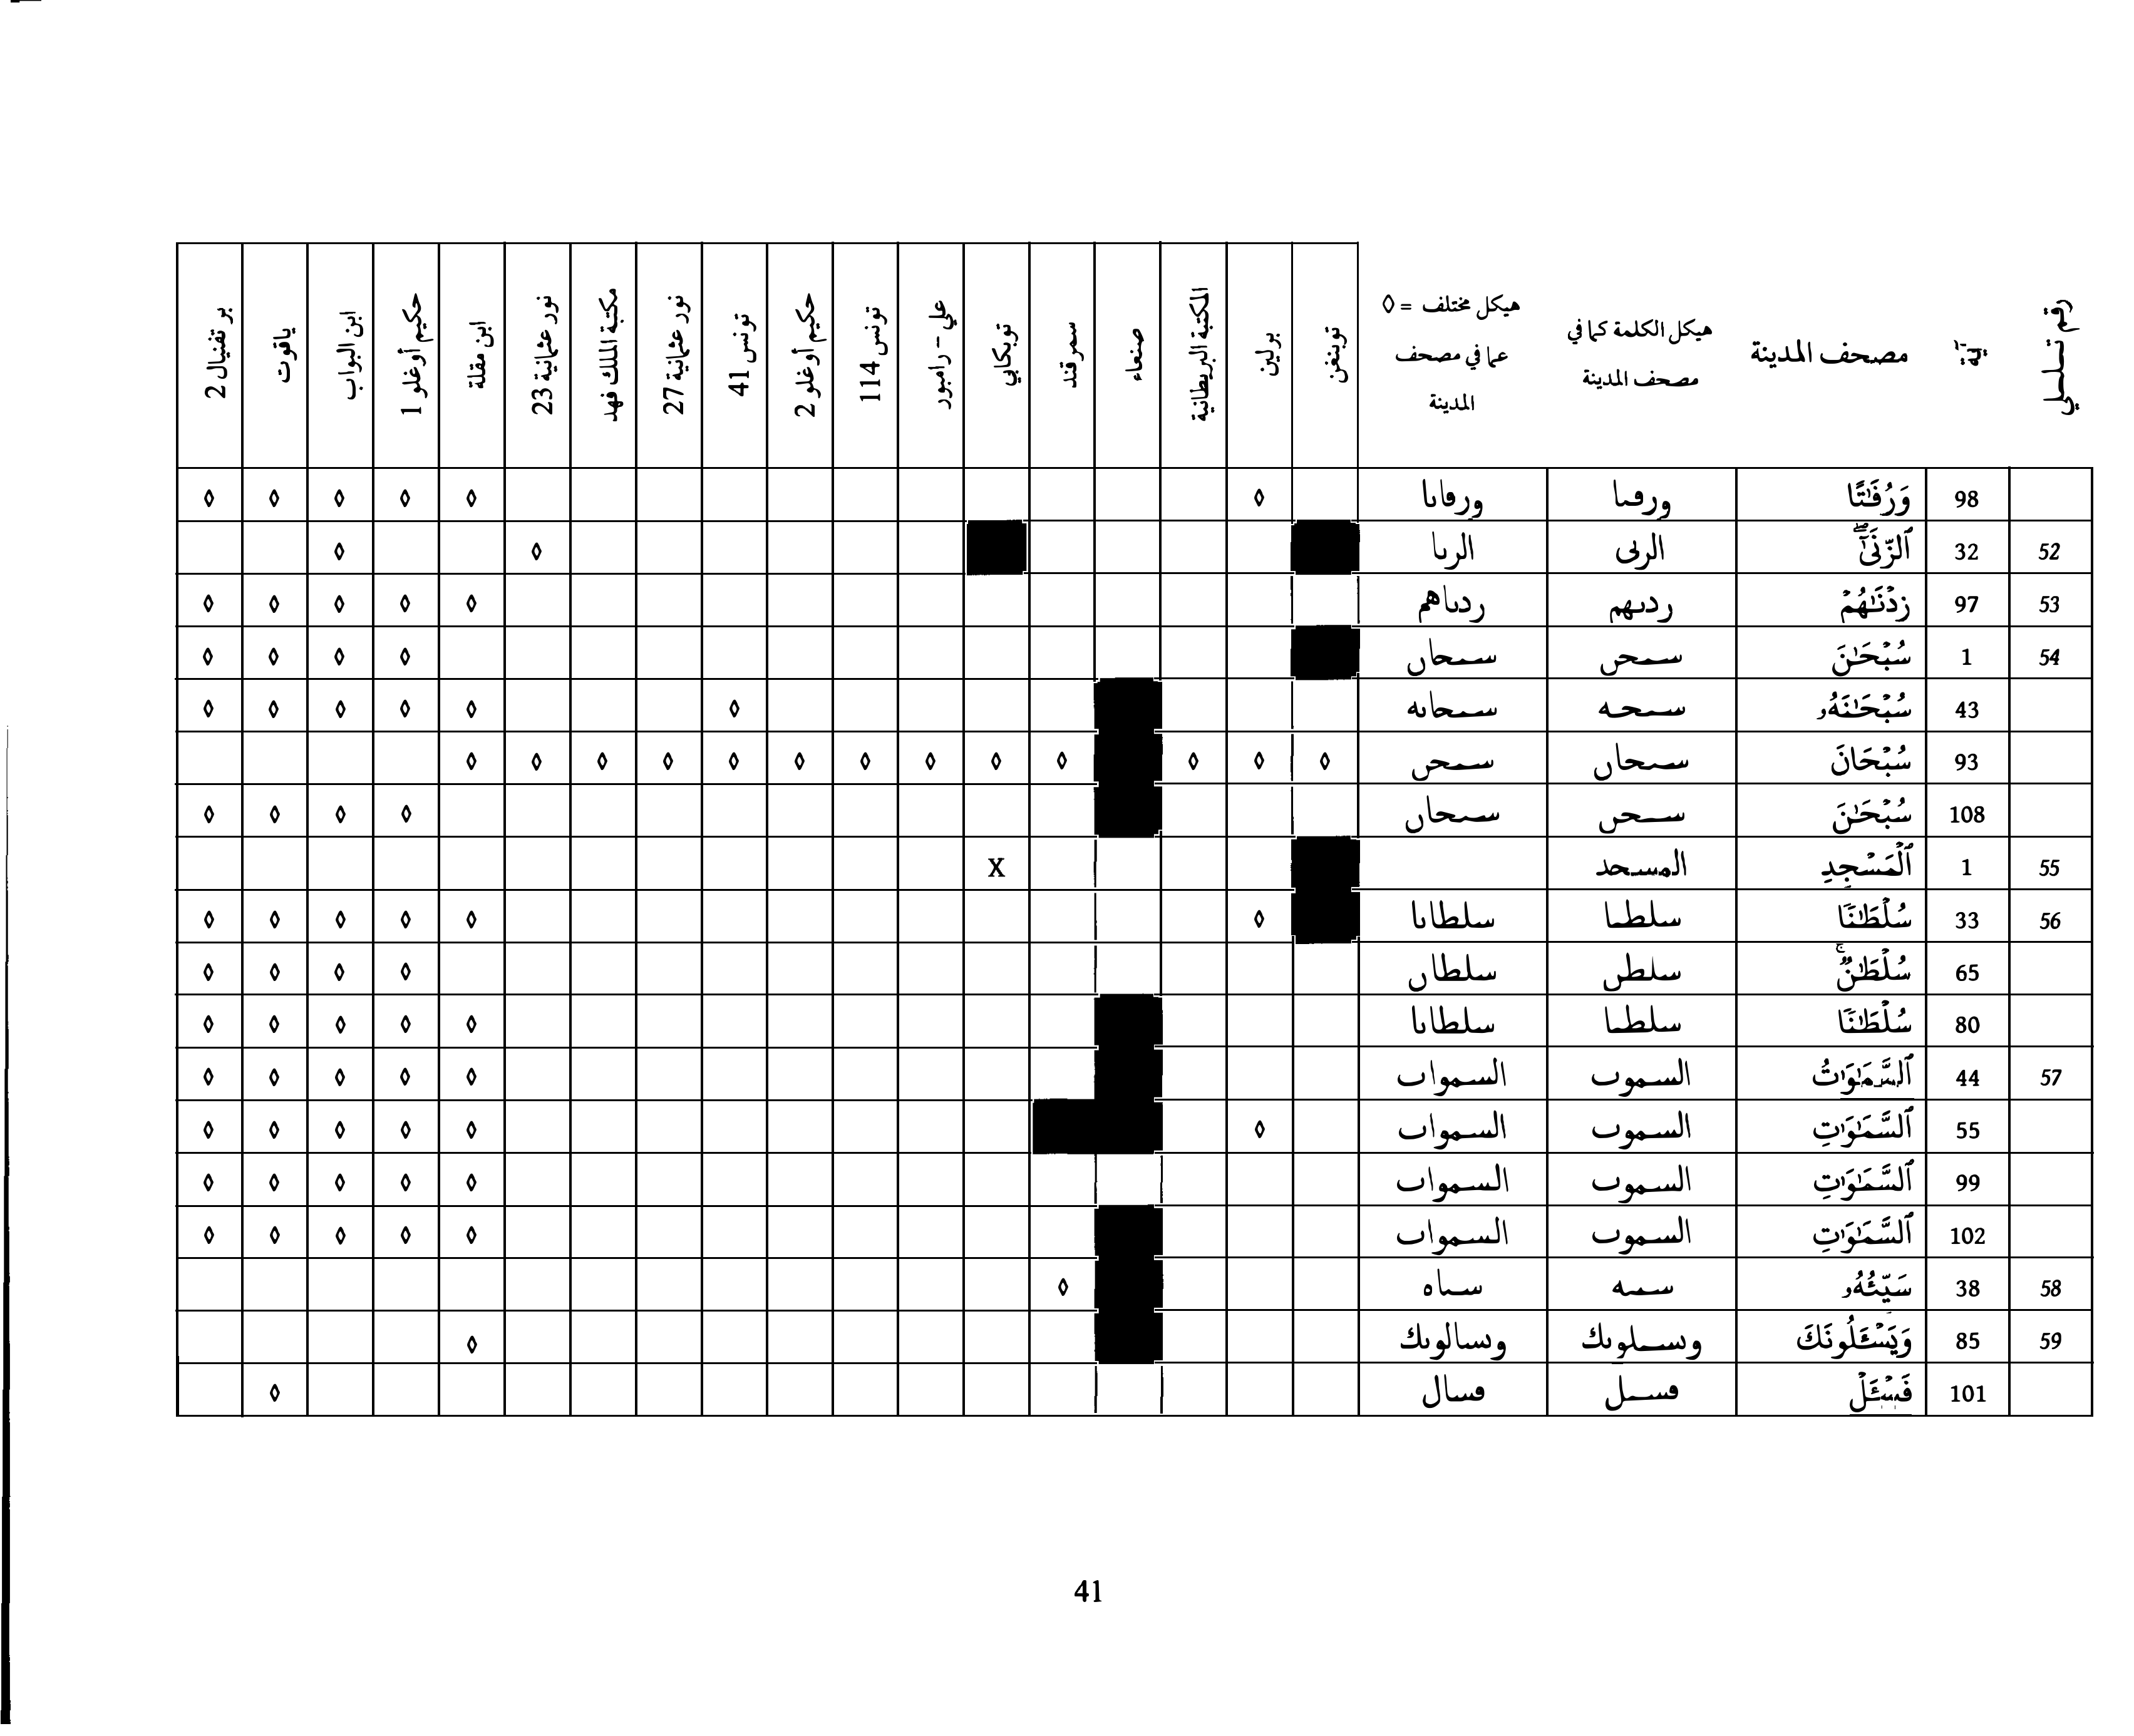 رقم تسلسلي آية مصحف المدينة هيكل الكلمة كما في مصحف المدينة هيكل مختلف = ◊ عما في مصحف المدينة توبنغن برلين المكتبة البريطانية صنعاء سمرقند توبكابي علي – رامبور تونس 114 حكيم أوغلو 2 تونس 41 نور عثمانية 27 مكتبة الملك فهد نور عثمانية 23 ابن مقلة حكيم أوغلو 1 ابن البواب ياقوت بر تفنيال 2
98 وَرُفَٰتًا ورڡٮا ورڡاٮا ◊ ◊ ◊ ◊ ◊ ◊
52 32 ٱلزِّنَىٰٓۖ الرٮى الرٮا ◊ ◊
53 97 زِدْنَٰهُمْ ردٮهم ردٮاهم ◊ ◊ ◊ ◊ ◊
54 1 سُبْحَٰنَ سٮحں سٮحاں ◊ ◊ ◊ ◊
43 سُبْحَٰنَهُۥ سٮحٮه سٮحاٮه ◊ ◊ ◊ ◊ ◊ ◊
93 سُبْحَانَ سٮحاں سٮحں ◊ ◊ ◊ ◊ ◊ ◊ ◊ ◊ ◊ ◊ ◊ ◊ ◊
108 سُبْحَٰنَ سٮحں سٮحاں ◊ ◊ ◊ ◊
55 1 ٱلْمَسْجِدِ المسحد x
56 33 سُلْطَٰنًا سلطٮا سلطاٮا ◊ ◊ ◊ ◊ ◊ ◊
65 سُلْطَٰنٌۚ سلطں سلطاں ◊ ◊ ◊ ◊
80 سُلْطَٰنًا سلطٮا سلطاٮا ◊ ◊ ◊ ◊ ◊
57 44 ٱلسَّمَٰوَٰتُ السموٮ السمواٮ ◊ ◊ ◊ ◊ ◊
55 ٱلسَّمَٰوَٰتِ السموٮ السمواٮ ◊ ◊ ◊ ◊ ◊ ◊
99 ٱلسَّمَٰوَٰتِ السموٮ السمواٮ ◊ ◊ ◊ ◊ ◊
102 ٱلسَّمَٰوَٰتِ السموٮ السمواٮ ◊ ◊ ◊ ◊ ◊
58 38 سَيِّئُهُۥ سٮٮه سٮاه ◊
59 85 وَيَسْـَٔلُونَكَ وٮسٮلوٮك وٮسالوٮك ◊
101 فَسْـَٔلْ ڡسٮل ڡسال ◊
41